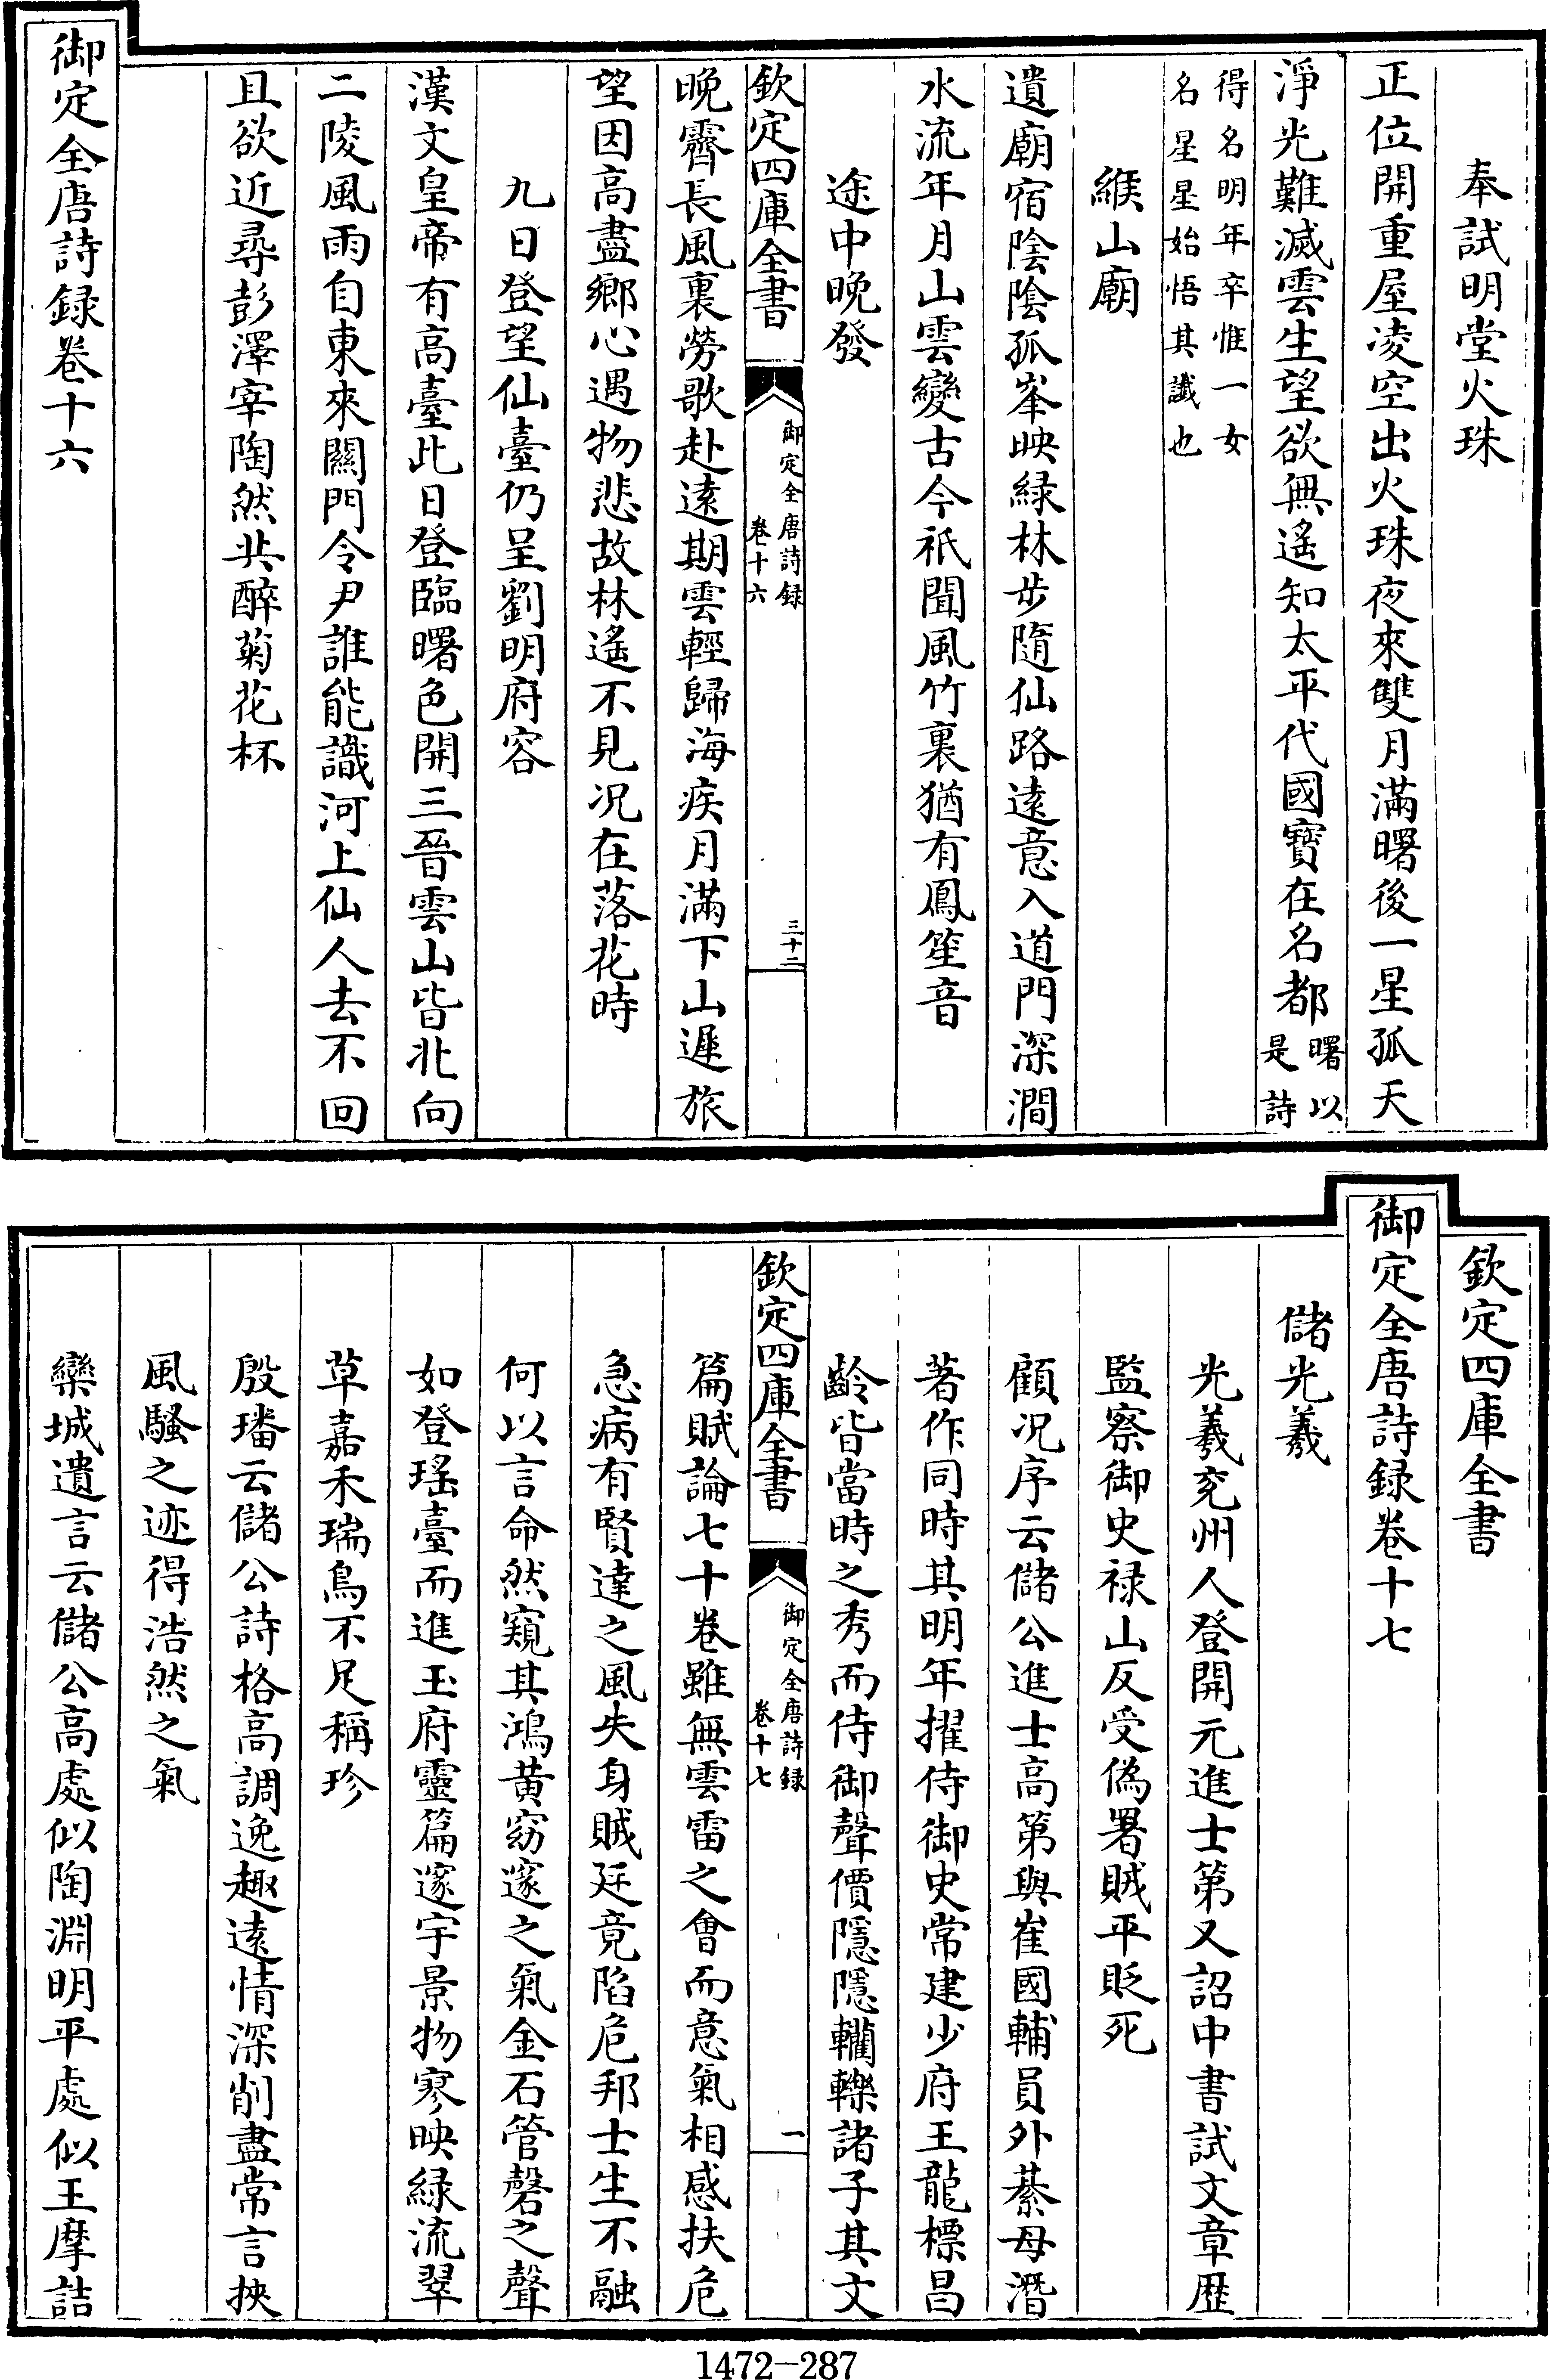 奉試明堂火珠
正位開重屋凌空出火珠夜來雙月滿曙後一星孤天
淨光難滅雲生望欲無遙知太平代國寶在名都曙以是詩
得名明年卒惟一女
名星星始悟其讖也
緱山廟
遺廟宿陰陰孤峯映緑林步隨仙路遠意入道門深澗
水流年月山雲變古今祇聞風竹裏猶有鳳笙音
途中晚發
欽定四庫全書
御定全唐詩録
卷十六
三十二
晚霽長風裏勞歌赴遠期雲輕歸海疾月滿下山遲旅
望因高盡鄉心遇物悲故林遙不見况在落花時
九日登望仙臺仍呈劉明府容
漢文皇帝有高臺此日登臨曙色開三晉雲山皆北向
二陵風雨自東來關門令尹誰能識河上仙人去不回
且欲近尋彭澤宰陶然共醉菊花杯
御定全唐詩録卷十六
欽定四庫全書
御定全唐詩録卷十七
儲光羲
光羲兖州人登開元進士第又詔中書試文章歷
監察御史禄山反受偽署賊平貶死
顧况序云儲公進士高第與崔國輔員外綦母潛
著作同時其明年擢侍御史常建少府王龍標昌
齡皆當時之秀而侍御聲價隱隱轥轢諸子其文
欽定四庫全書
御定全唐詩録
卷十七
一
篇賦論七十卷雖無雲雷之會而意氣相感扶危
急病有賢達之風失身賊廷竟陷危邦士生不融
何以言命然窺其鴻黄窈邃之氣金石管磬之聲
如登瑶臺而進玉府靈篇邃宇景物寥映緑流翠
草嘉禾瑞鳥不足稱珍
殷璠云儲公詩格高調逸趣遠情深削盡常言挾
風騷之迹得浩然之氣
欒城遺言云儲公高處似陶淵明平處似王摩詰
1472-287